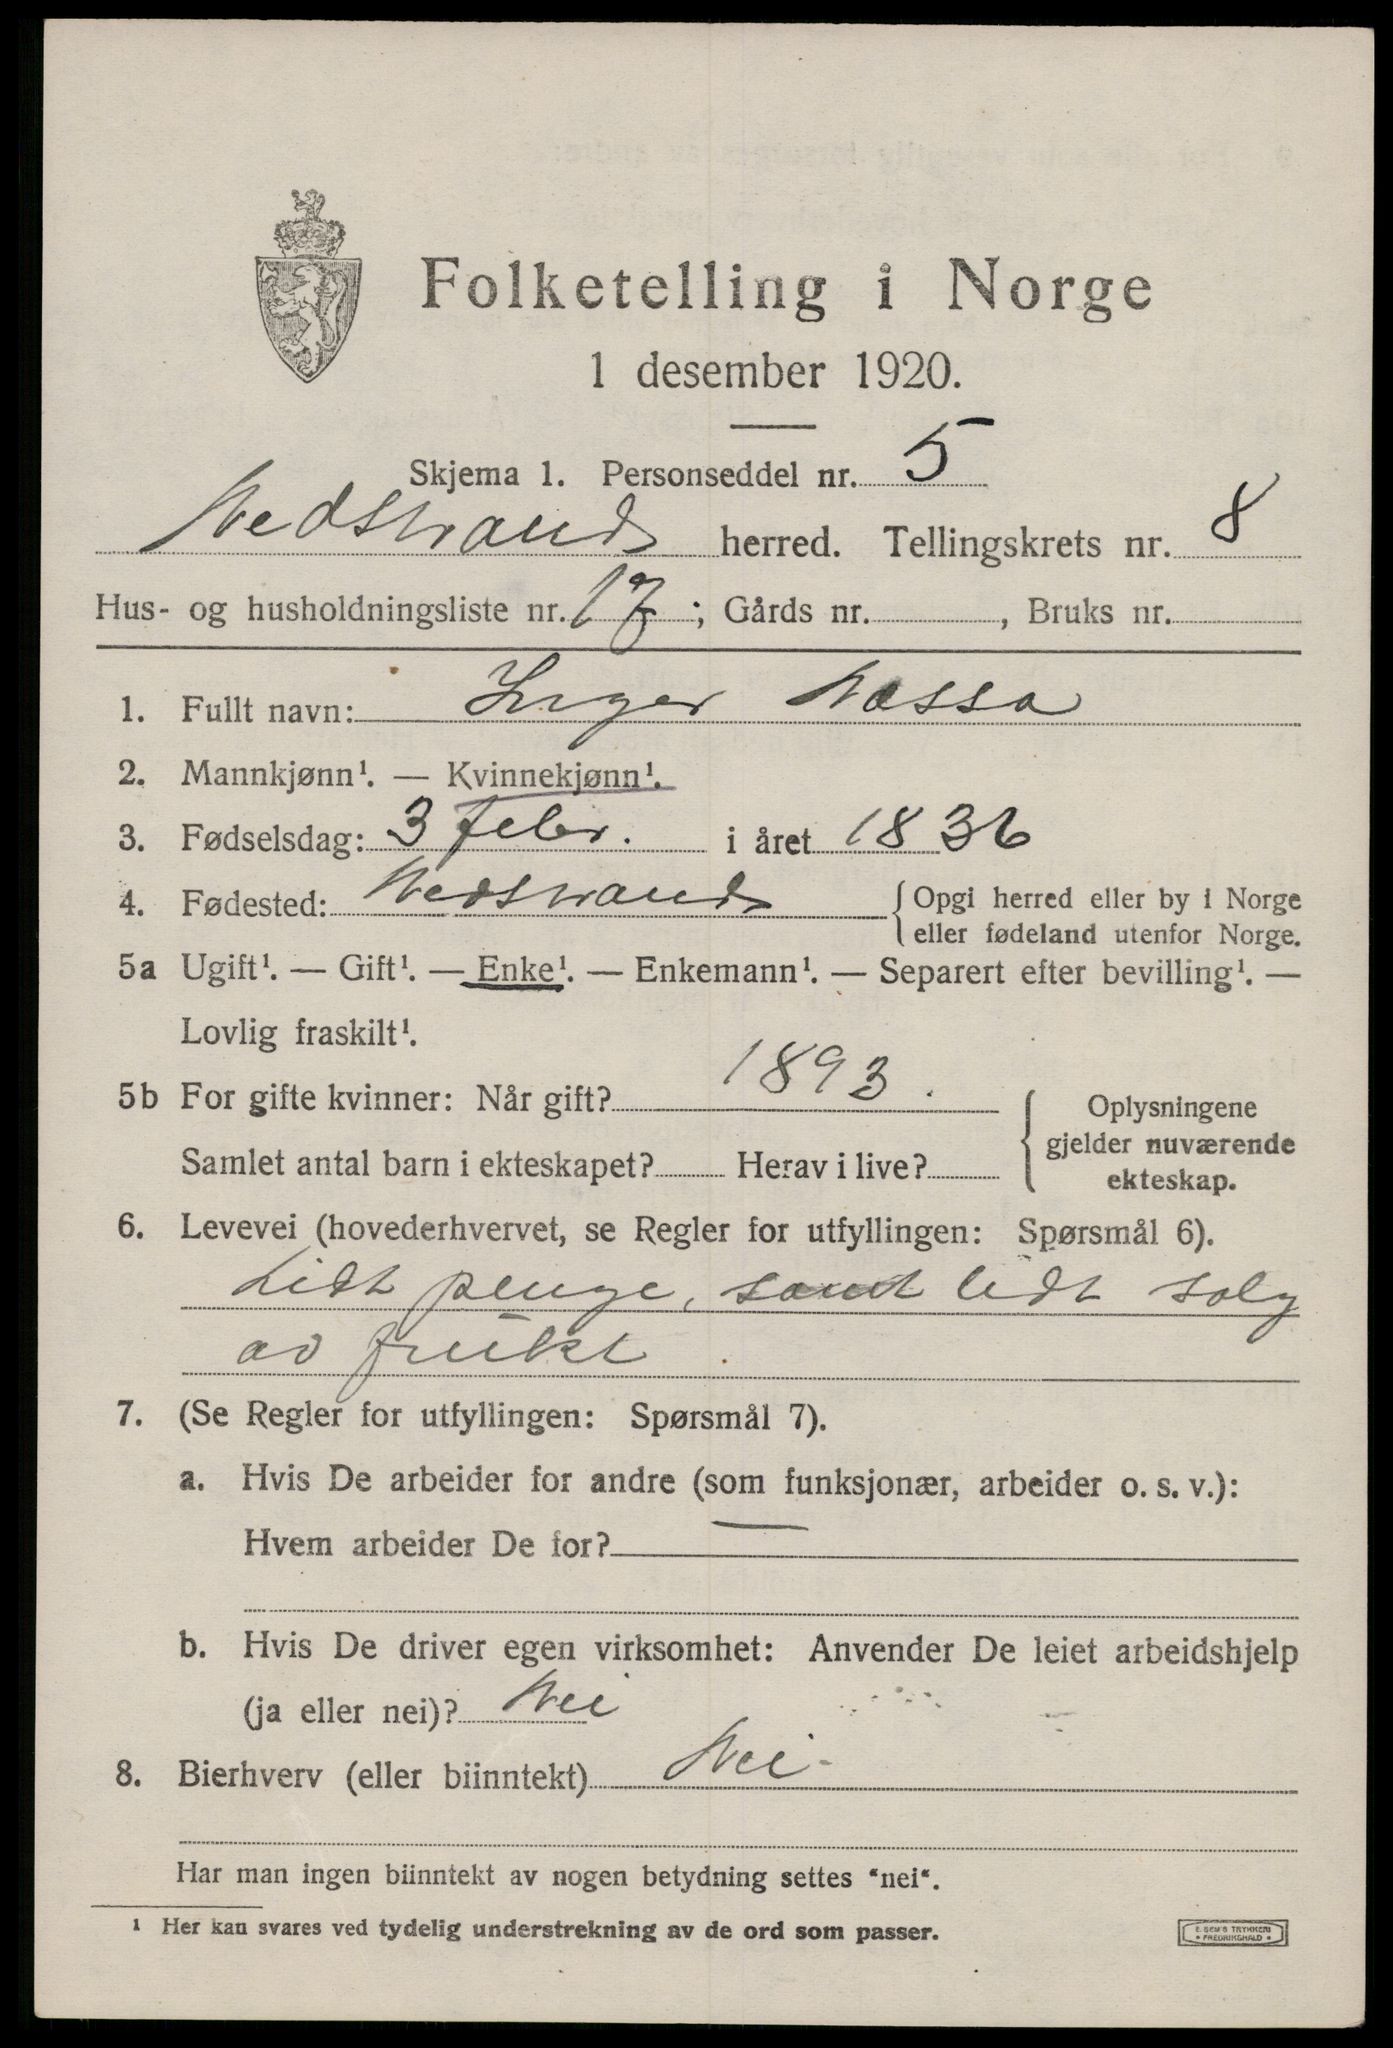 Folketelling i Norge
1 desember 1920.
Skjema 1. Personseddel nr. 5
Nedstrand herred. Tellingskrets nr. 8
Hus- og husholdningsliste nr. 17; Gårds nr. , Bruks nr.
1. Fullt navn: Inger Næssa
2. Mannkjønn¹. — Kvinnekjønn¹.
3. Fødselsdag: 3 febr. i året 1836
4. Fødested: Nedstrand { Opgi herred eller by i Norge
eller fødeland utenfor Norge.
5a Ugift¹. — Gift¹. — Enke¹. — Enkemann¹. — Separert efter bevilling¹. —
Lovlig fraskilt¹.
5b For gifte kvinner: Når gift? 1893. { Oplysningene
gjelder nuværende
Samlet antal barn i ekteskapet? Herav i live?
ekteskap.
6. Levevei (hovederhvervet, se Regler for utfyllingen: Spørsmål 6).
Lidt penge, samt lidt salg
av frukt
7. (Se Regler for utfyllingen: Spørsmål 7).
a. Hvis De arbeider for andre (som funksjonær, arbeider o. s. v.):
Hvem arbeider De for? —
b. Hvis De driver egen virksomhet: Anvender De leiet arbeidshjelp
(ja eller nei)? Nei
8. Bierhverv (eller biinntekt) Nei-
Har man ingen biinntekt av nogen betydning settes "nei".
¹ Her kan svares ved tydelig understrekning av de ord som passer.
E. SEM'S TRYKKERI
• FREDRIKSHALD •